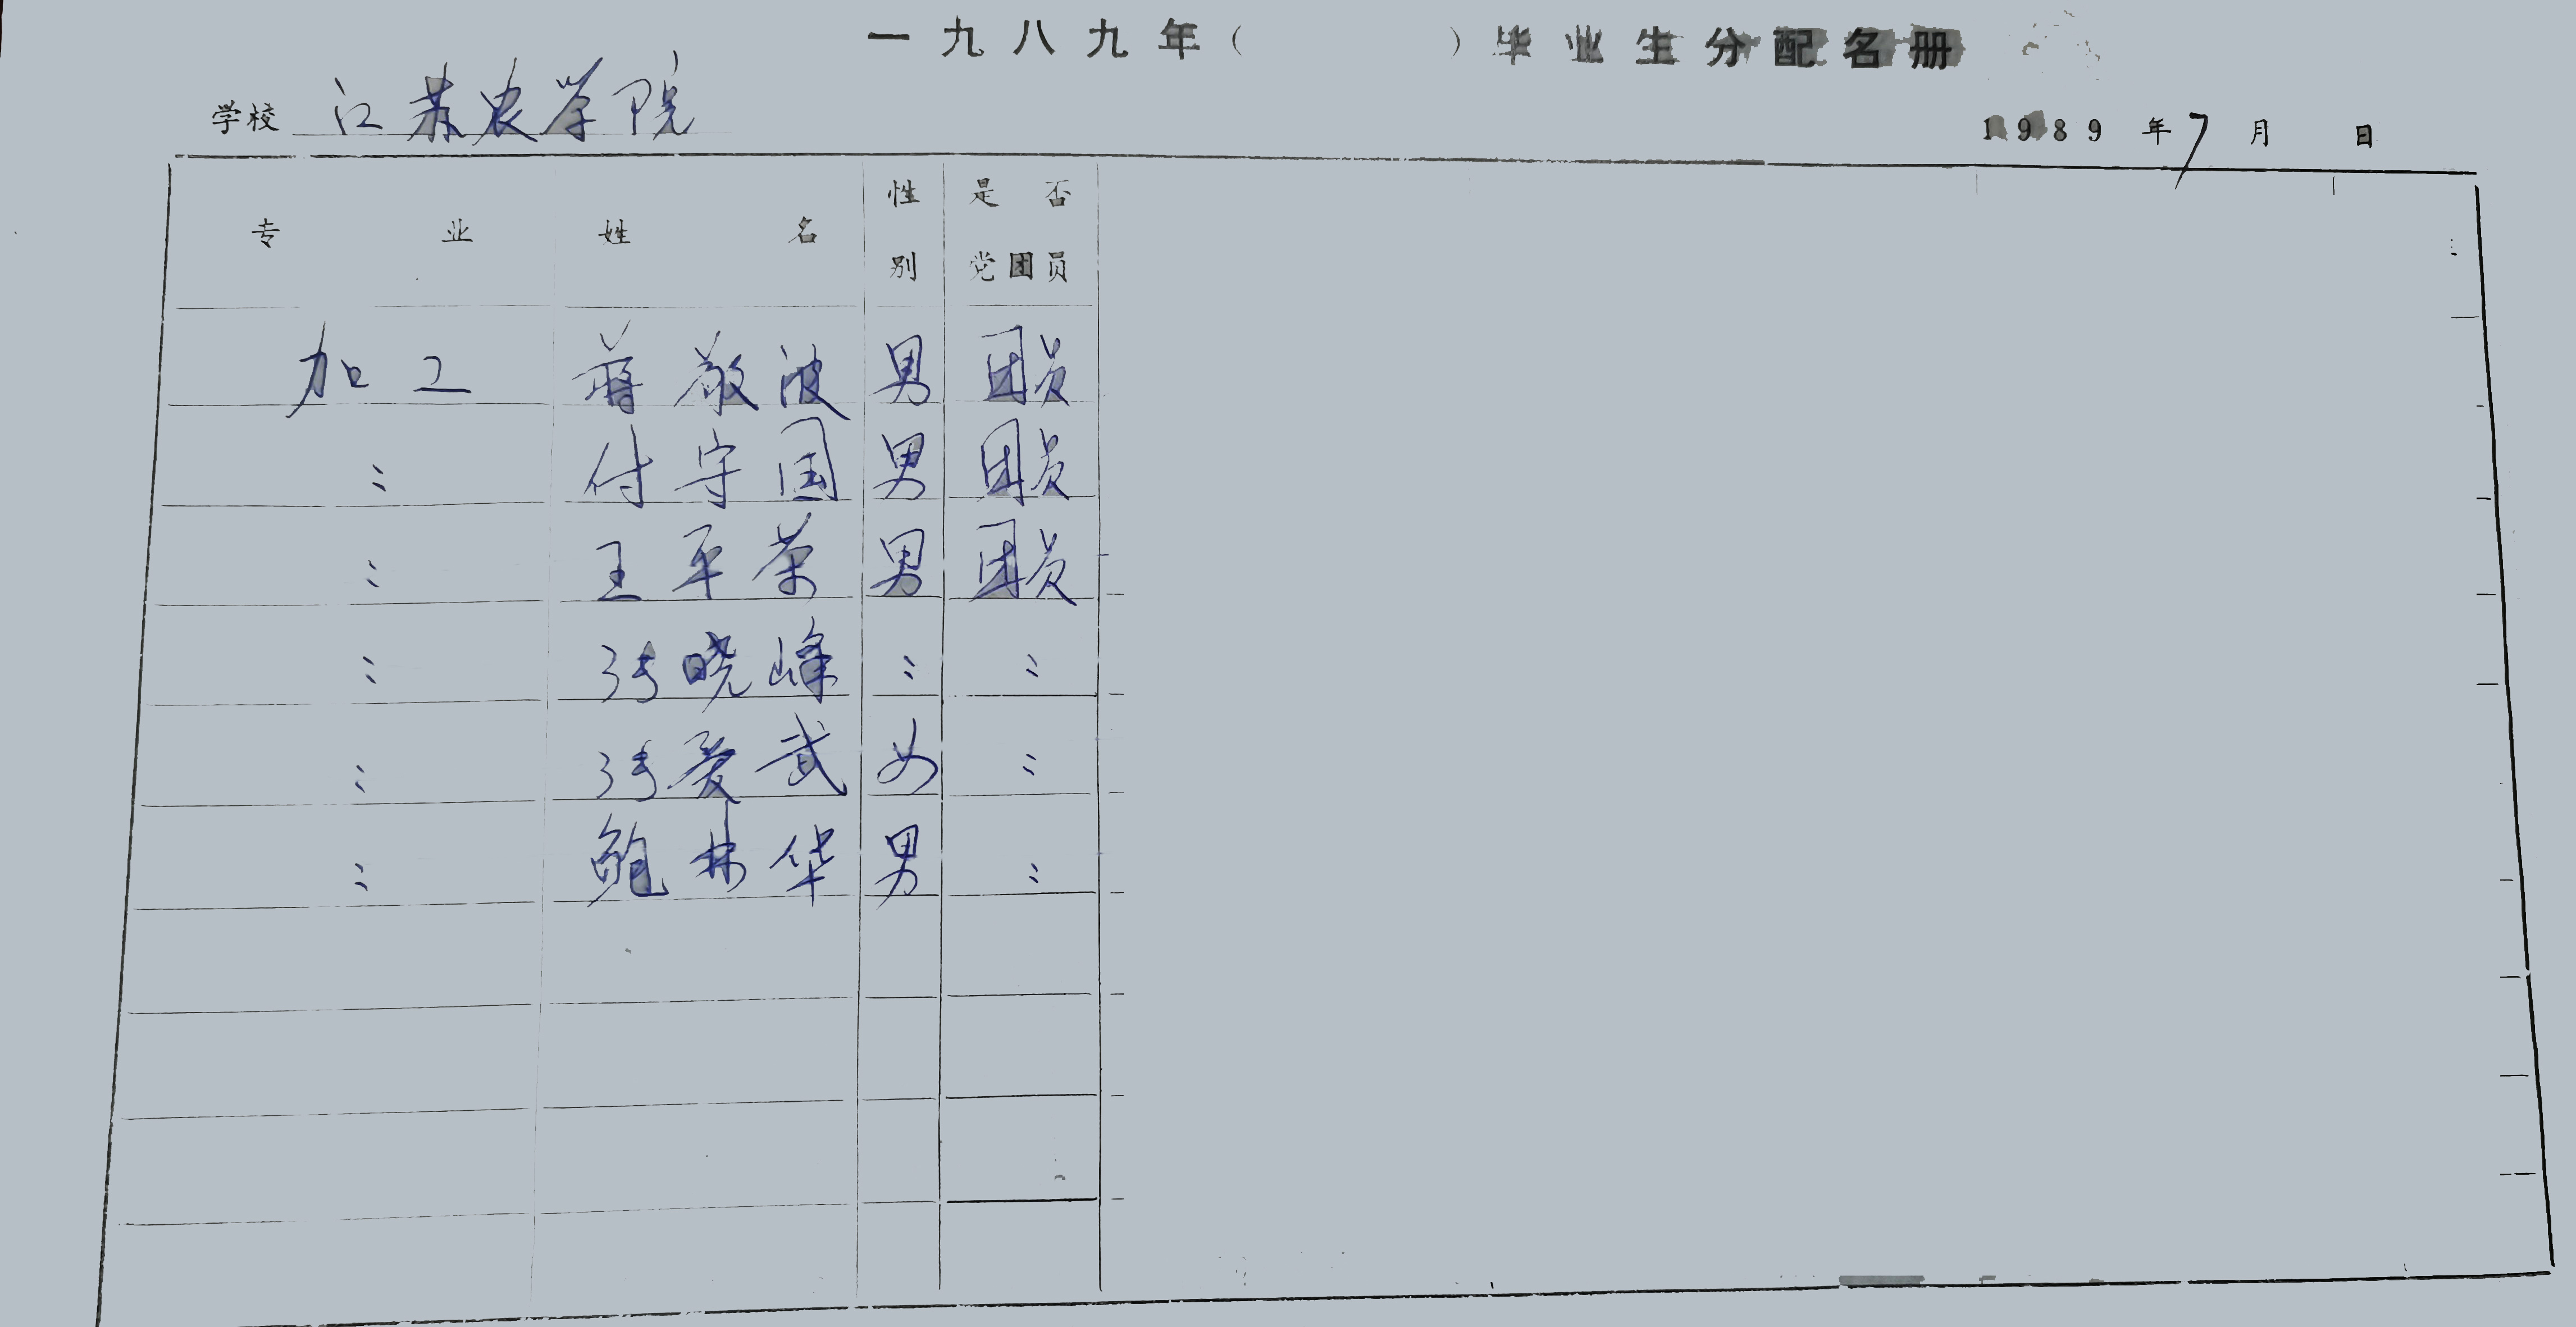 一九八九年（ ）毕业生分配名册
学校 江苏农学院
1989 年 7 月 日
专业 姓名 性别 是否党团员
加工 蒋敬波 男 团员
〃 付守国 男 团员
〃 王平荣 男 团员
〃 冯晓峰 〃 〃
〃 冯爱武 女 〃
〃 鲍林华 男 〃